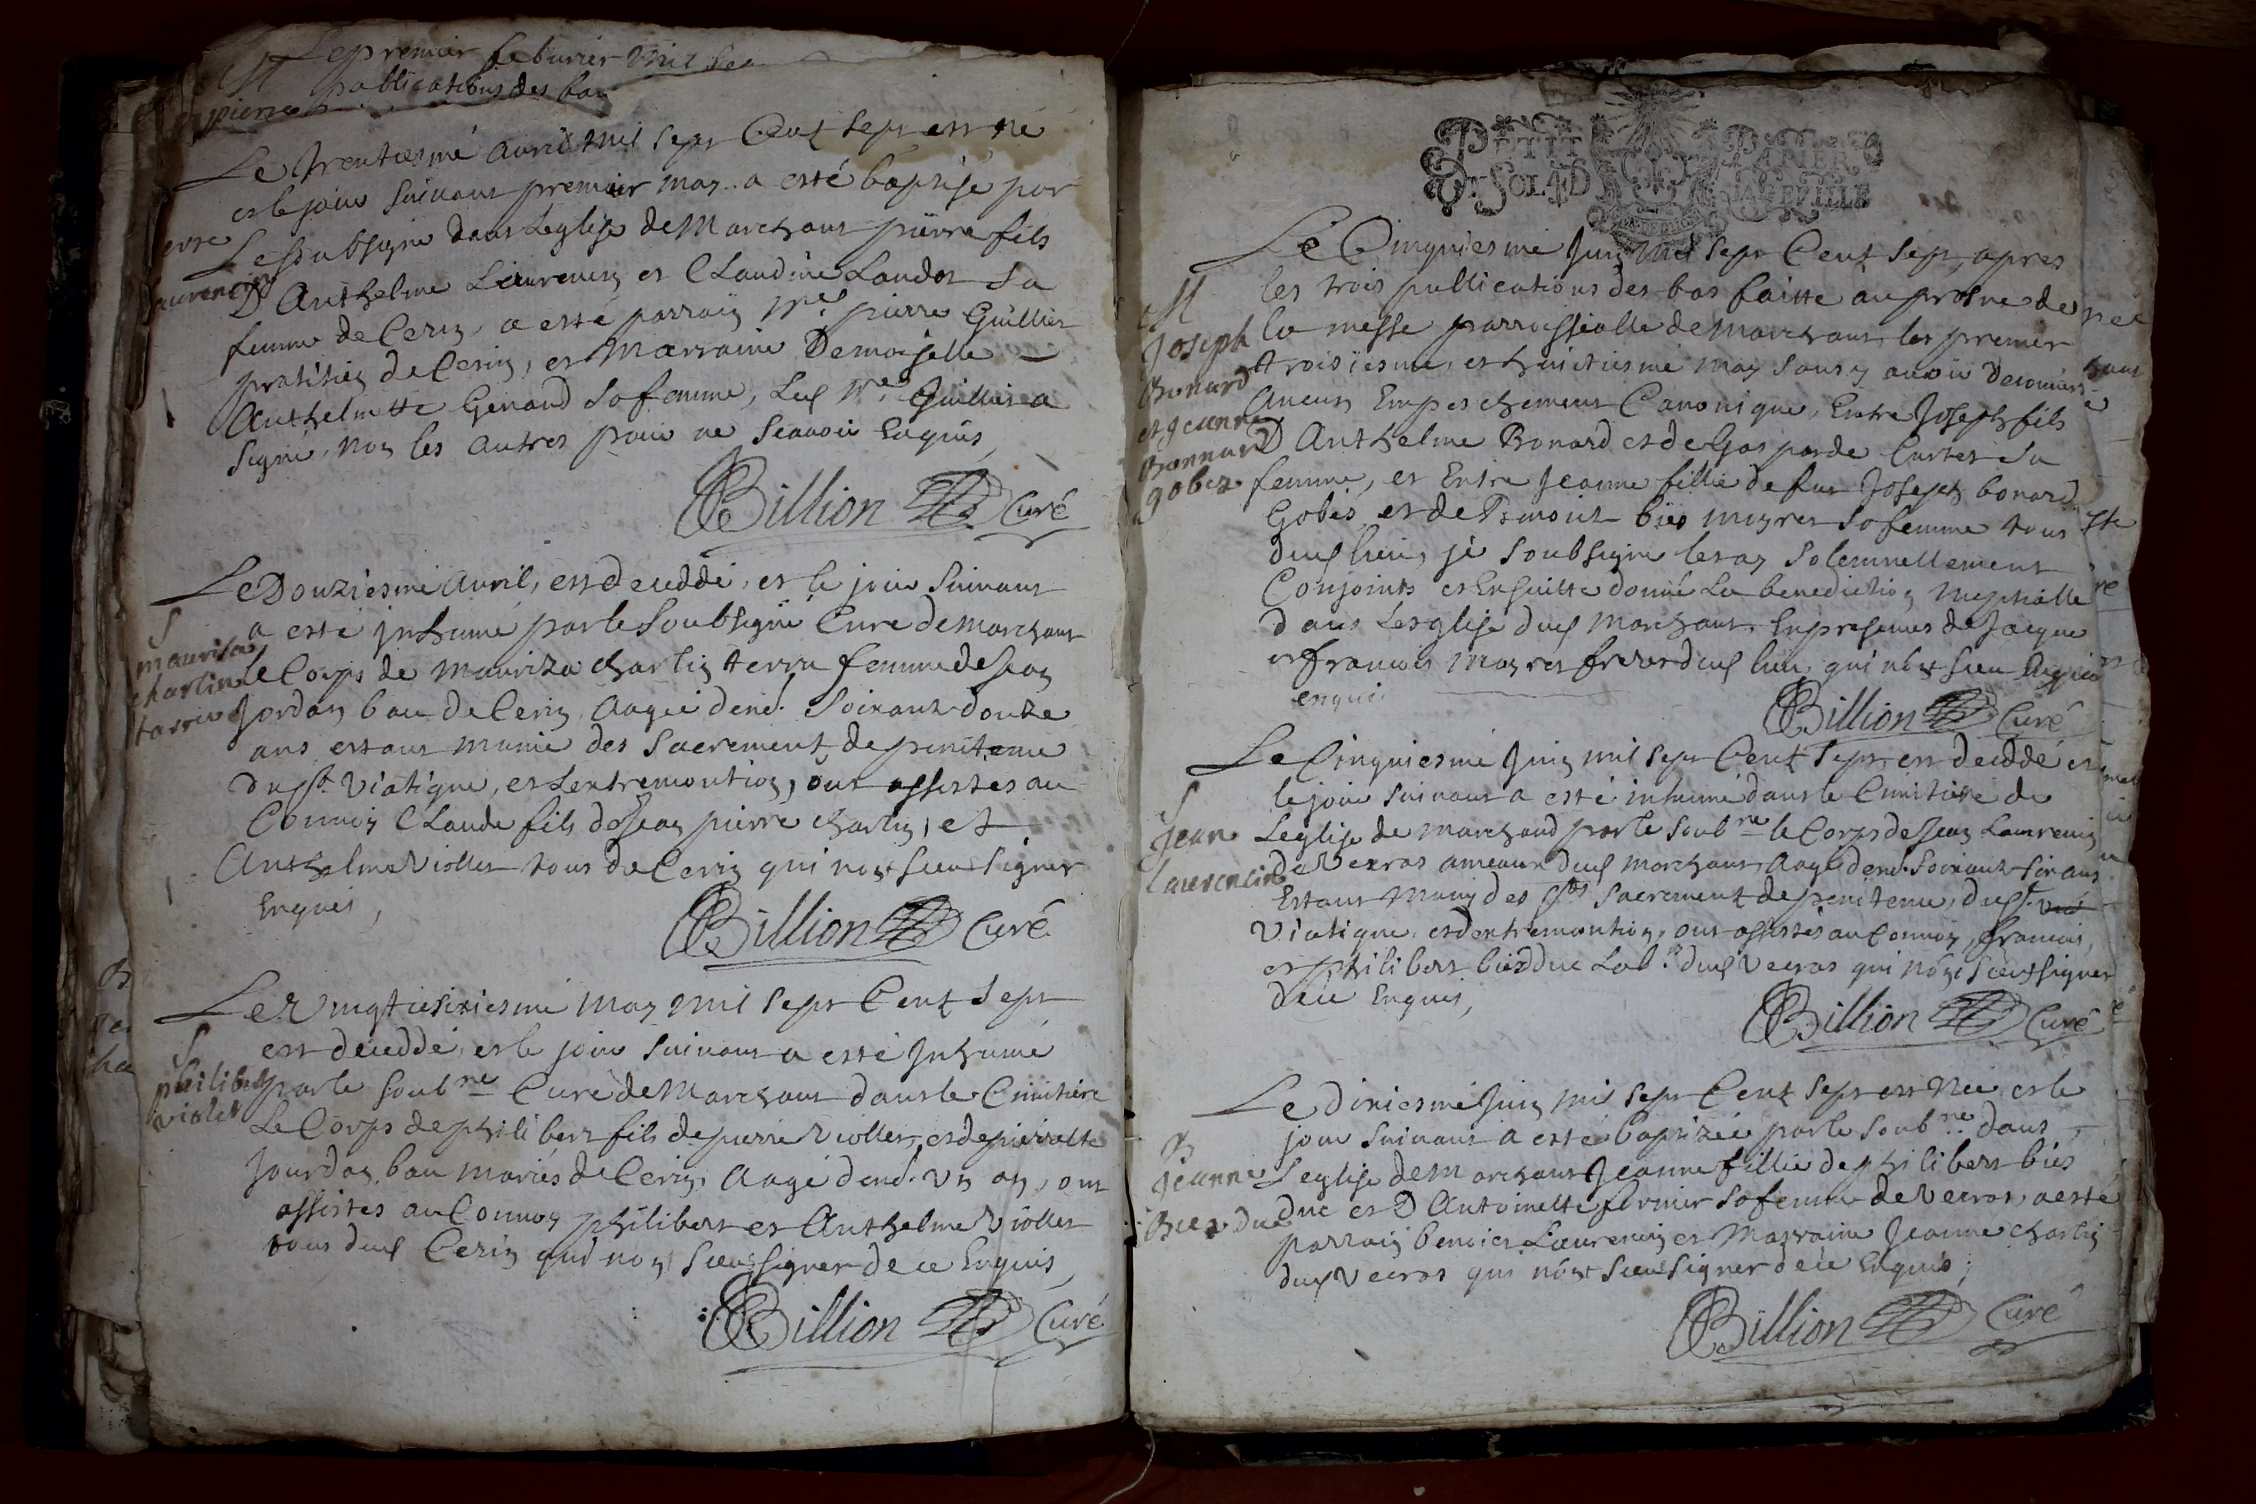 M
Le premier feburier mil se
publications des ba
pierre
Le trentiesme avril mil sept Cent sept est né
et le jour suivant premier may a esté baptisé par
Le soubsigné dans Leglise de Marchant pierre fils
D Anthelme Laurencin et Claudine Landot sa
femme de Cerin, a esté parrain Mre pierre Guillier
pratitien de Cerin, et Marraine Demoiselle
Anthelmette Genand sa femme, Led Mre Guillier a
signé, non les autres pour ne scavoir Enquis
Laurencin
Billion Curé
Le Douziesme Avril, est deceddé, et le jour suivant
S
maurisa
charlin
terru
a esté inhumé par le Soubsigné Curé de Marchant
Le Corps de Mauriza charlin terru femme de Jean
Jordan bau de Cerin, Aagée denv. Soixante douze
ans estant munie des Sacrement de penitence
du st. Viatique, et Lextremontion, ont assistes au
Convoy Claude fils de Jean pierre charlin, et
Anthelme Viollet tous de Cerin qui nont sceu signer
Enquis,
Billion Curé
Le Vingtiesixiesme May mil sept Cent sept
S
philibert
violet
est deceddé, et le jour suivant a esté Inhumé
par le soubné Curé de Marchant dans le Cimitiere
Le Corps de philibert fils de pierre Viollet, et de pierrette
Jourdan bau mariés de Cerin, Aagé denv. Un an, ont
assistes au Convoy philibert et Anthelme Viollet
tous dud Cerin qui nont sceu signer de ce Enquis,
Billion Curé
PETIT PAPIER
UN SOL 4 D LA FEUILLE
Le Cinquiesme Juin Mil sept Cent sept, apres
M
Joseph
Bonard
et jeanne
Bonnard
gobez
les trois publications des bas faitte au prosne de
la messe parrossialle de marchant les premier
troisiesme, et huictiesme may sans y avoir descouvert
Aucun Empeschement Canonique, Entre Joseph fils
D Anthelme Bonard et de Gasparde Curtet sa
femme, et Entre Jeanne fillie de feu Joseph bonard
Gobés et de bies mayret sa femme tous
dud lieu, je soubsigné les ay solemnellement
Conjoints et Ensuitte donné La benediction Nuptialle
dans Lesglise dud Marchant. En presences de Jacque
et francois Mayret freres dud lieu qui nont sceu signer
enquis
Billion Curé
Le Cinquiesme Juin mil sept Cent Sept, est deceddé et
S
jean
laurencin
le jour suivant a esté inhumé dans le Cimitiere de
Leglise de Marchand par le Soubné le Corps de Jean Laurencin
de Vecras ameaux dud Marchant, Aagé denv. Soixante six ans
Estant Muny des sts Sacrement de penitence, du st.
Viatique, et dextremontion, ont assistés au Convoy, francois,
et philibert biedduc Lab. dud Vecras qui nont sceut signer
de ce Enquis,
Billion Curé
Le dixiesme Juin mil sept Cent sept est Née et le
B
jeanne
Bies duc
jour suivant a esté baptizée par le Soubné dans
Leglise de Marchant Jeanne fillie de philibert bies
duc et D Antoinette fornier sa femme de Vecras, a esté
parrain benoict Laurencin et Marraine Jeanne charlin
dud Vecras qui nont sceu signer de ce Enquis;
Billion Curé